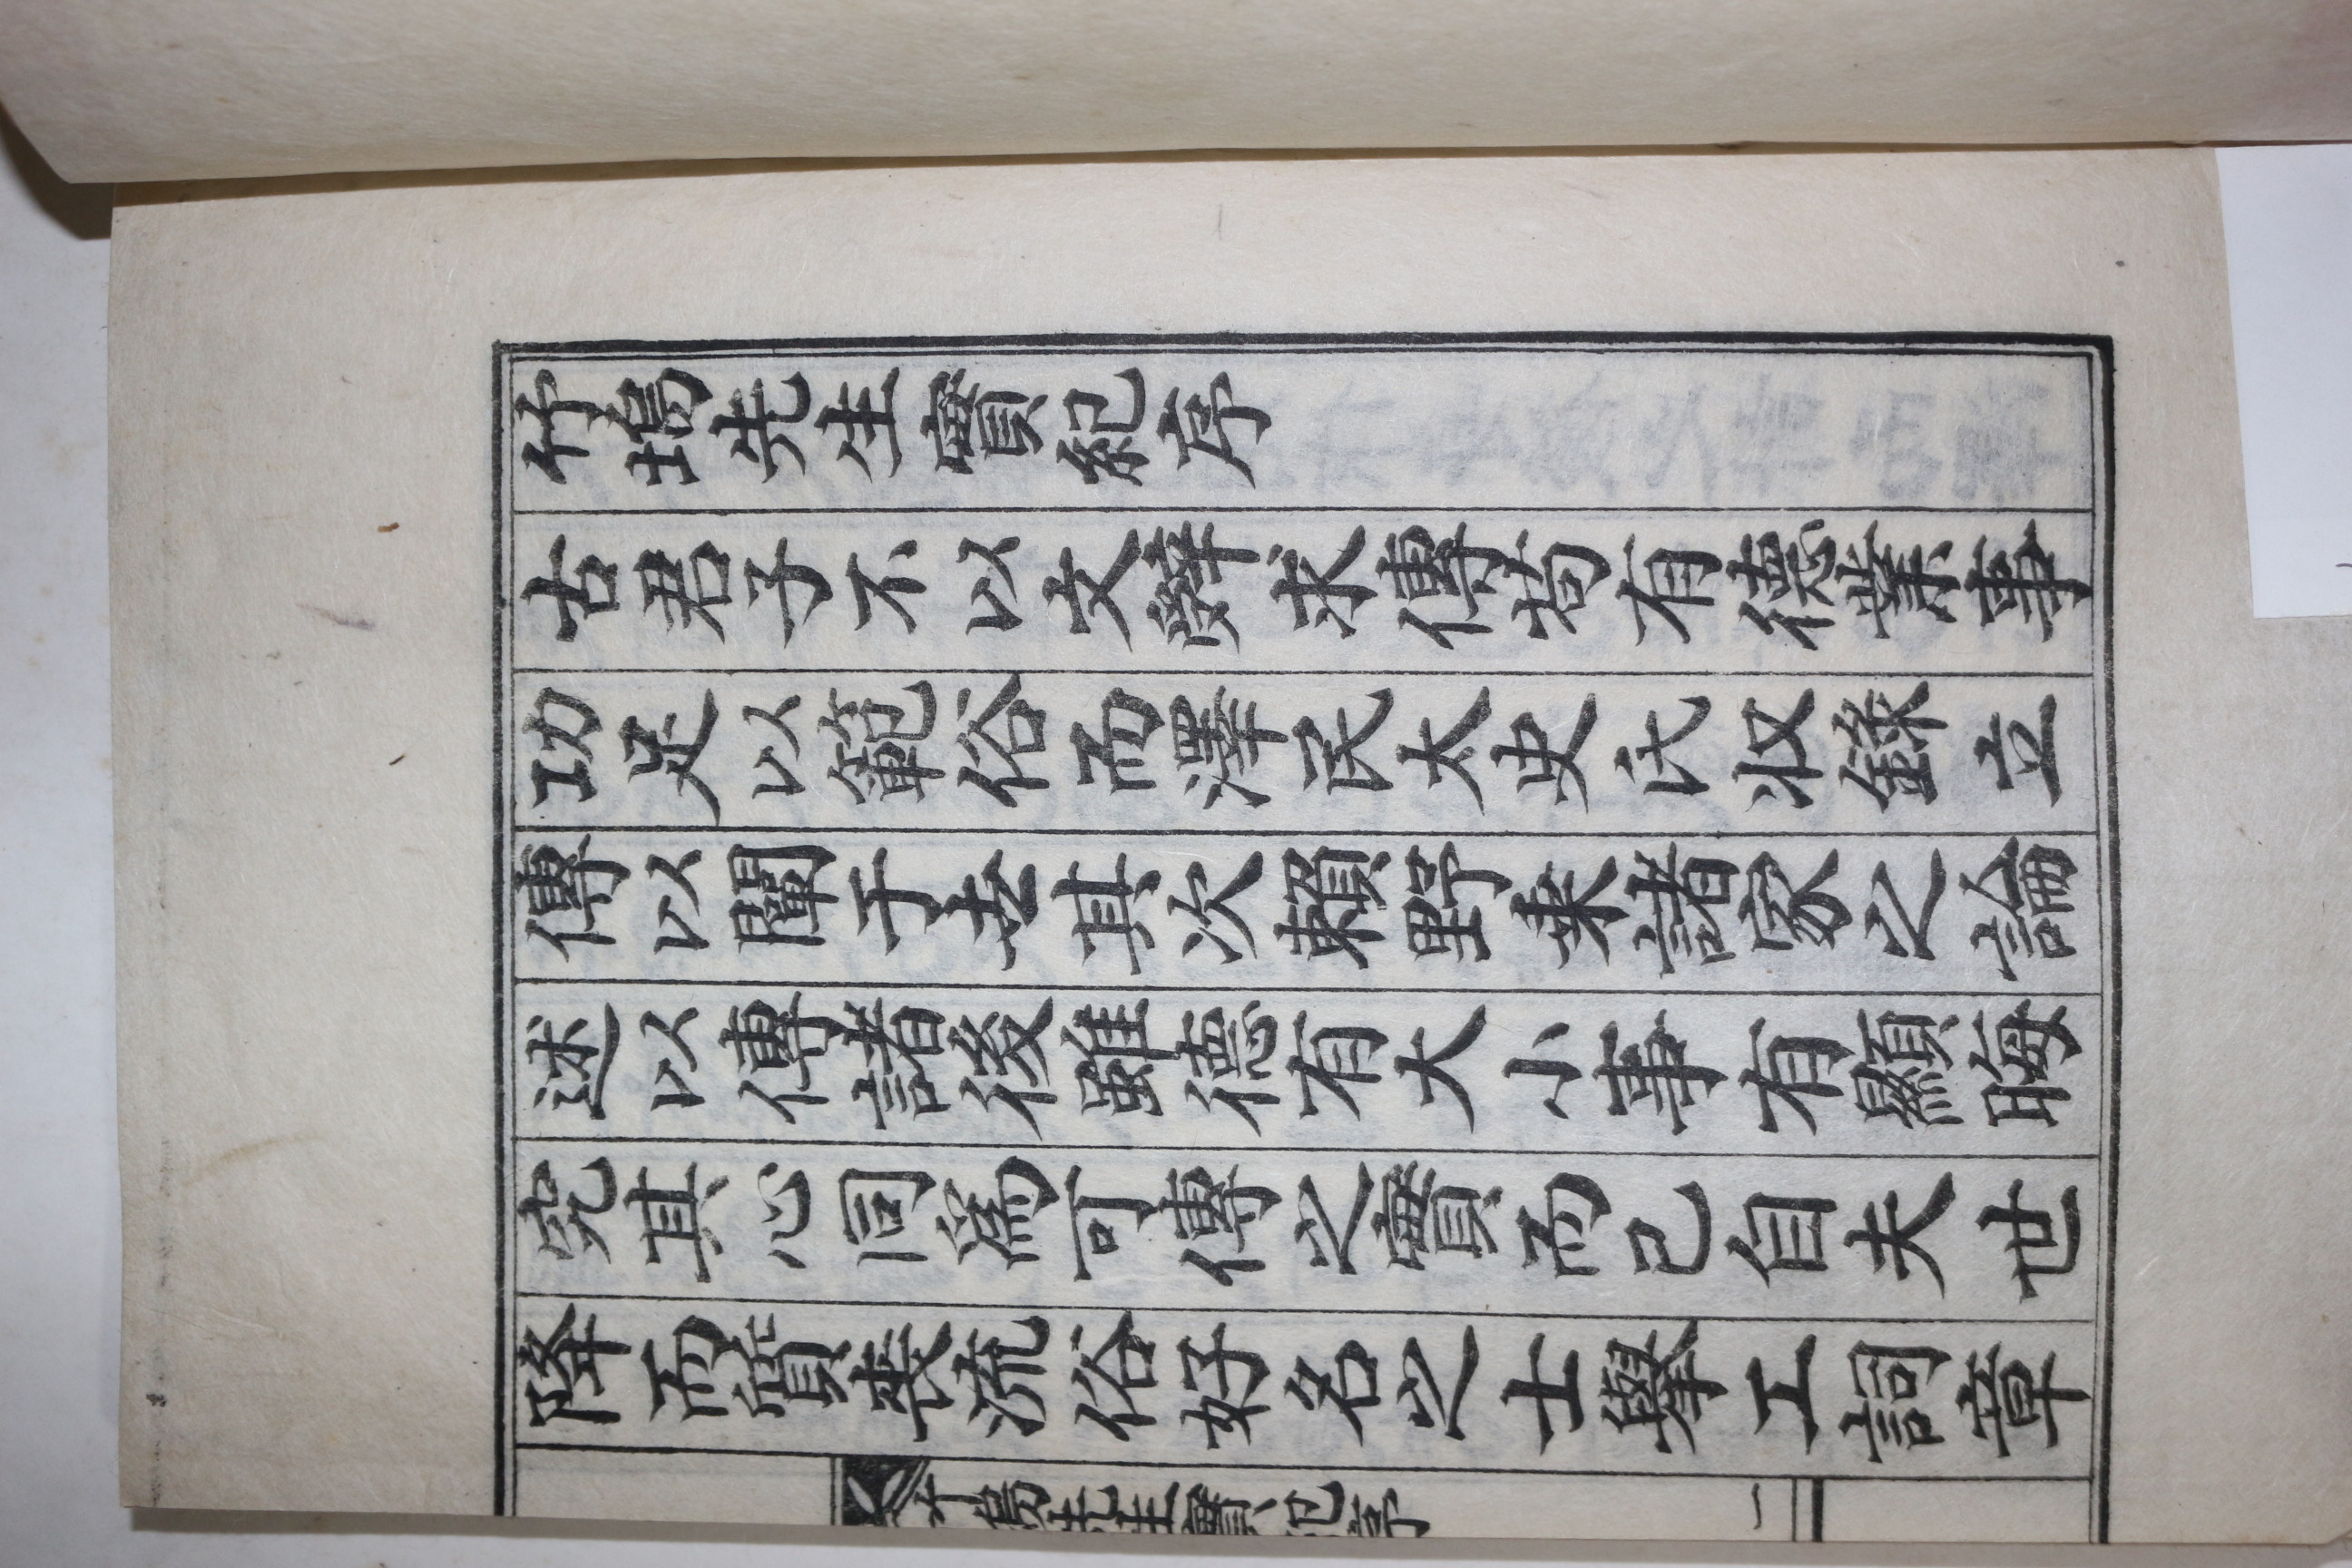 竹塢先生實紀序
古君子不以文辭求傳苟有德業事
功足以範俗而澤民太史氏收錄立
傳以闡于世其次賴野乘諸家之論
述以傳諸後雖德有大小事有顯晦
究其心同爲可傳之實而已自夫世
降而質喪流俗好名之士擧工詞章
竹塢先生實紀序
一